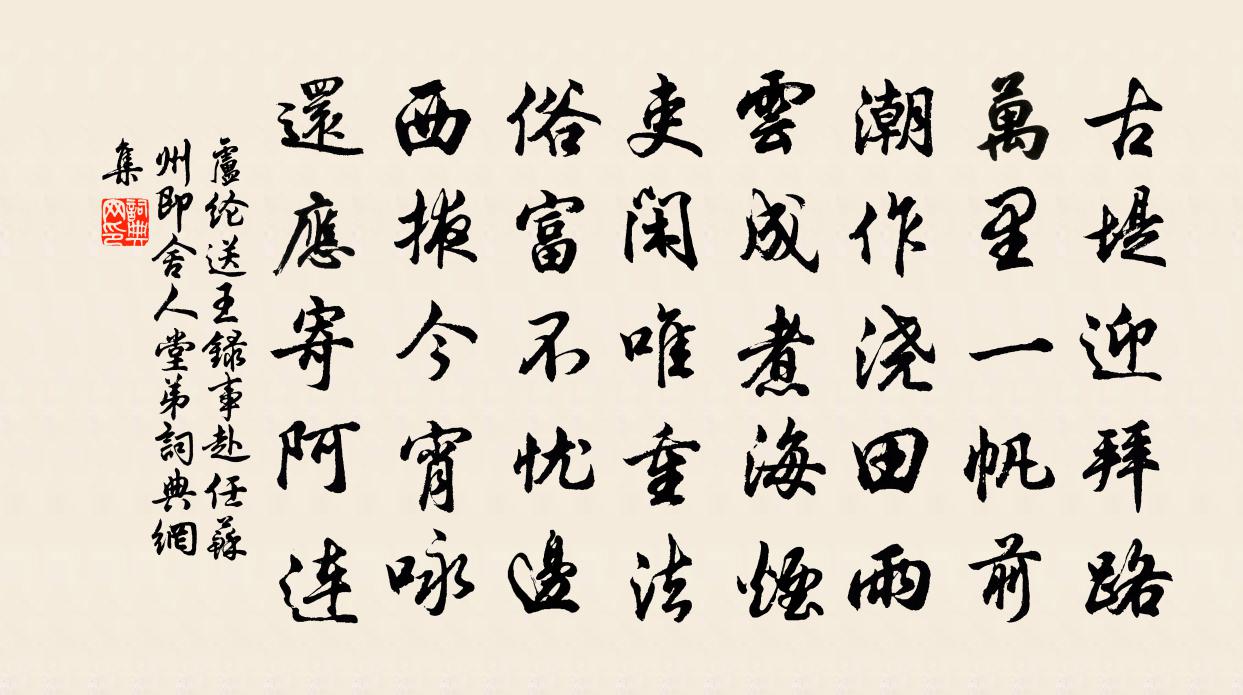 古堤迎拜路
萬里一帆前
潮作浇田雨
雲成煮海煙
吏閑唯重法
俗富不忧邊
西掖今宵咏
還應寄阿連
盧纶送王録事赴任蘇
州即舍人堂弟詞典網
集
詞典
网印